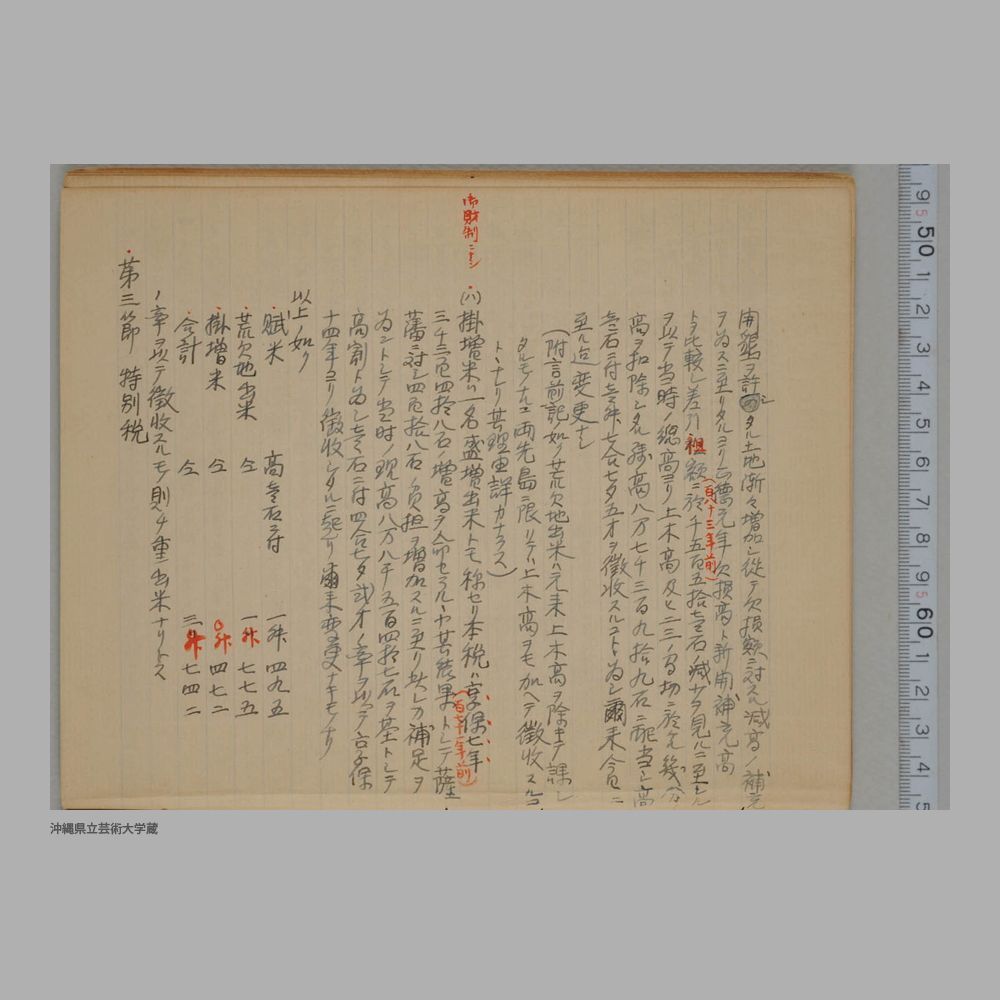 開墾ヲ許シタル土地漸々増加シ従テ欠損額ニ対スル減高ノ補充
ヲ為スニ至リタルヨリ正徳元年欠損高ト新開補充高
(百八十三年前)
トヲ比較シ差引租額ニ於テ千五百五拾壱石ノ減サヲ見ルニ至ル
ヲ以テ当時ノ総高ヨリ上木高及ヒ二三ノ間切ニ於ケル幾分ノ
高ヲ扣除シタル残高八万七千三百九拾九石ニ配当シ高
壱石ニ付壱升七合七夕五才ヲ徴収スルコトヽ為シ爾来今日ニ
至ル迄変更ナシ
(附言前記ノ如ク荒欠地出米ハ元来上木高ヲ除キテ課シ
タルモノナルニ両先島ニ限リテハ上木高ヲモ加ヘテ徴収スルコ
トヽナレリ其理由詳カナラス)
御財制ニナシ
(八)掛増米ハ一名盛増出米トモ称セリ本税ハ享保七年
(百七十二年前)
三千三百四拾八石ノ増高ヲ命セラルヽヤ其結果トシテ薩
藩ニ対シ四百拾八石ノ負担ヲ増加スルニ至リ少レカ補足ヲ
為ントシテ当時ノ現高八万八千五百四拾七石ヲ基トシテ
高割ト為シ壱石ニ付四合七夕弐才ノ率ヲ以テ享保
十四年ヨリ徴収シタルニ起リ爾来変更ナキモノナリ
以上ノ如ク
賦米 高壱石ニ付 一升四九五
荒欠地出米 仝 一升七七五
掛増米 仝 〇升四七二
合計 仝 三升七四二
ノ率ヲ以テ徴収スルモノ則チ重出米ナリトス
第三節 特別税
50 60
沖縄県立芸術大学蔵